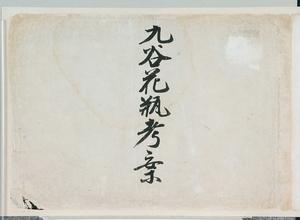 九谷花瓶考案